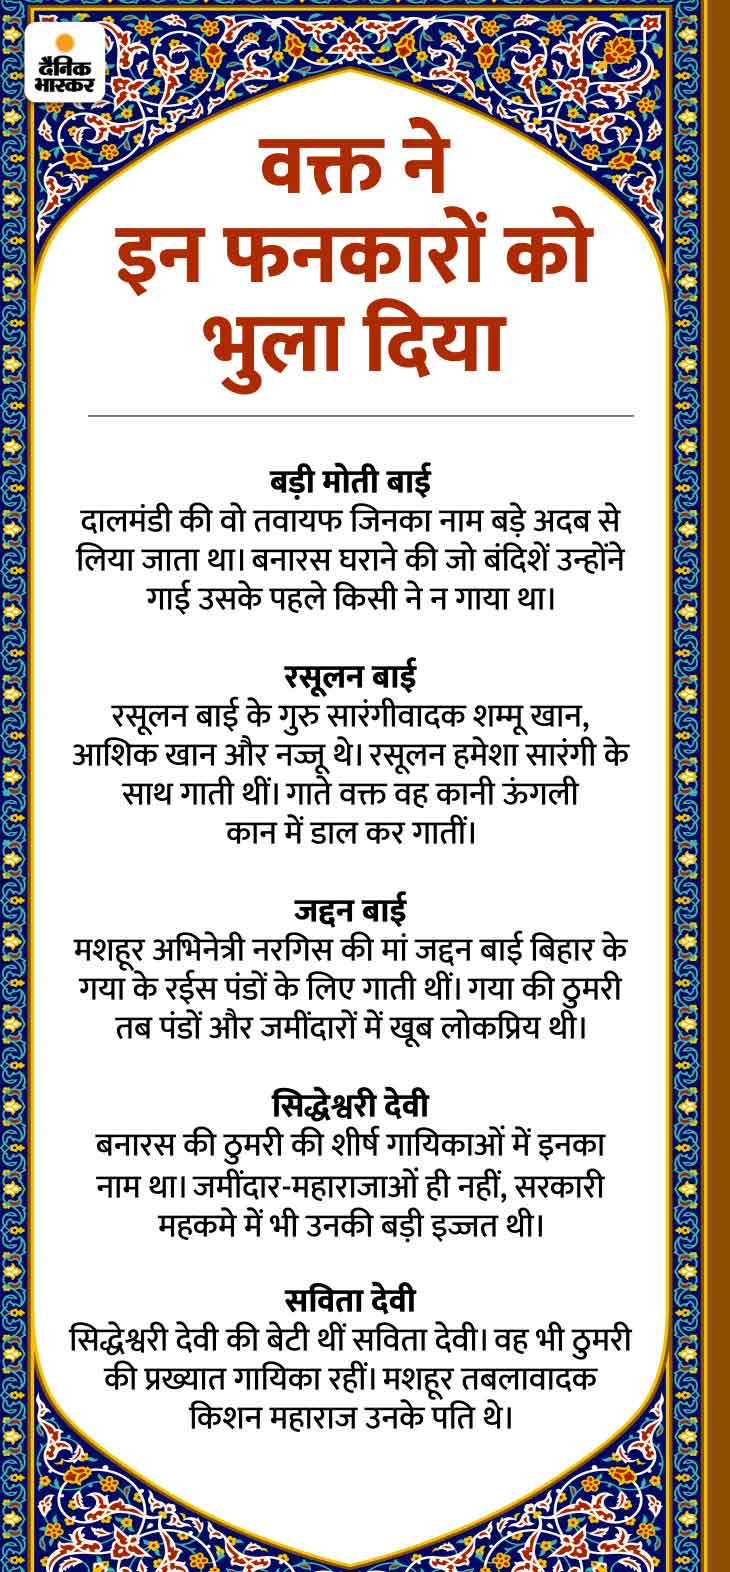 दैनिक
भास्कर
वक्त ने
इन फनकारों को
भुला दिया
बड़ी मोती बाई
दालमंडी की वो तवायफ जिनका नाम बड़े अदब से
लिया जाता था। बनारस घराने की जो बंदिशें उन्होंने
गाई उसके पहले किसी ने न गाया था।
रसूलन बाई
रसूलन बाई के गुरु सारंगीवादक शम्मू खान,
आशिक खान और नज्जू थे। रसूलन हमेशा सारंगी के
साथ गाती थीं। गाते वक्त वह कानी ऊंगली
कान में डाल कर गातीं।
जद्दन बाई
मशहूर अभिनेत्री नरगिस की मां जद्दन बाई बिहार के
गया के रईस पंडों के लिए गाती थीं। गया की ठुमरी
तब पंडों और जमींदारों में खूब लोकप्रिय थी।
सिद्धेश्वरी देवी
बनारस की ठुमरी की शीर्ष गायिकाओं में इनका
नाम था। जमींदार-महाराजाओं ही नहीं, सरकारी
महकमे में भी उनकी बड़ी इज्जत थी।
सविता देवी
सिद्धेश्वरी देवी की बेटी थीं सविता देवी। वह भी ठुमरी
की प्रख्यात गायिका रहीं। मशहूर तबलावादक
किशन महाराज उनके पति थे।